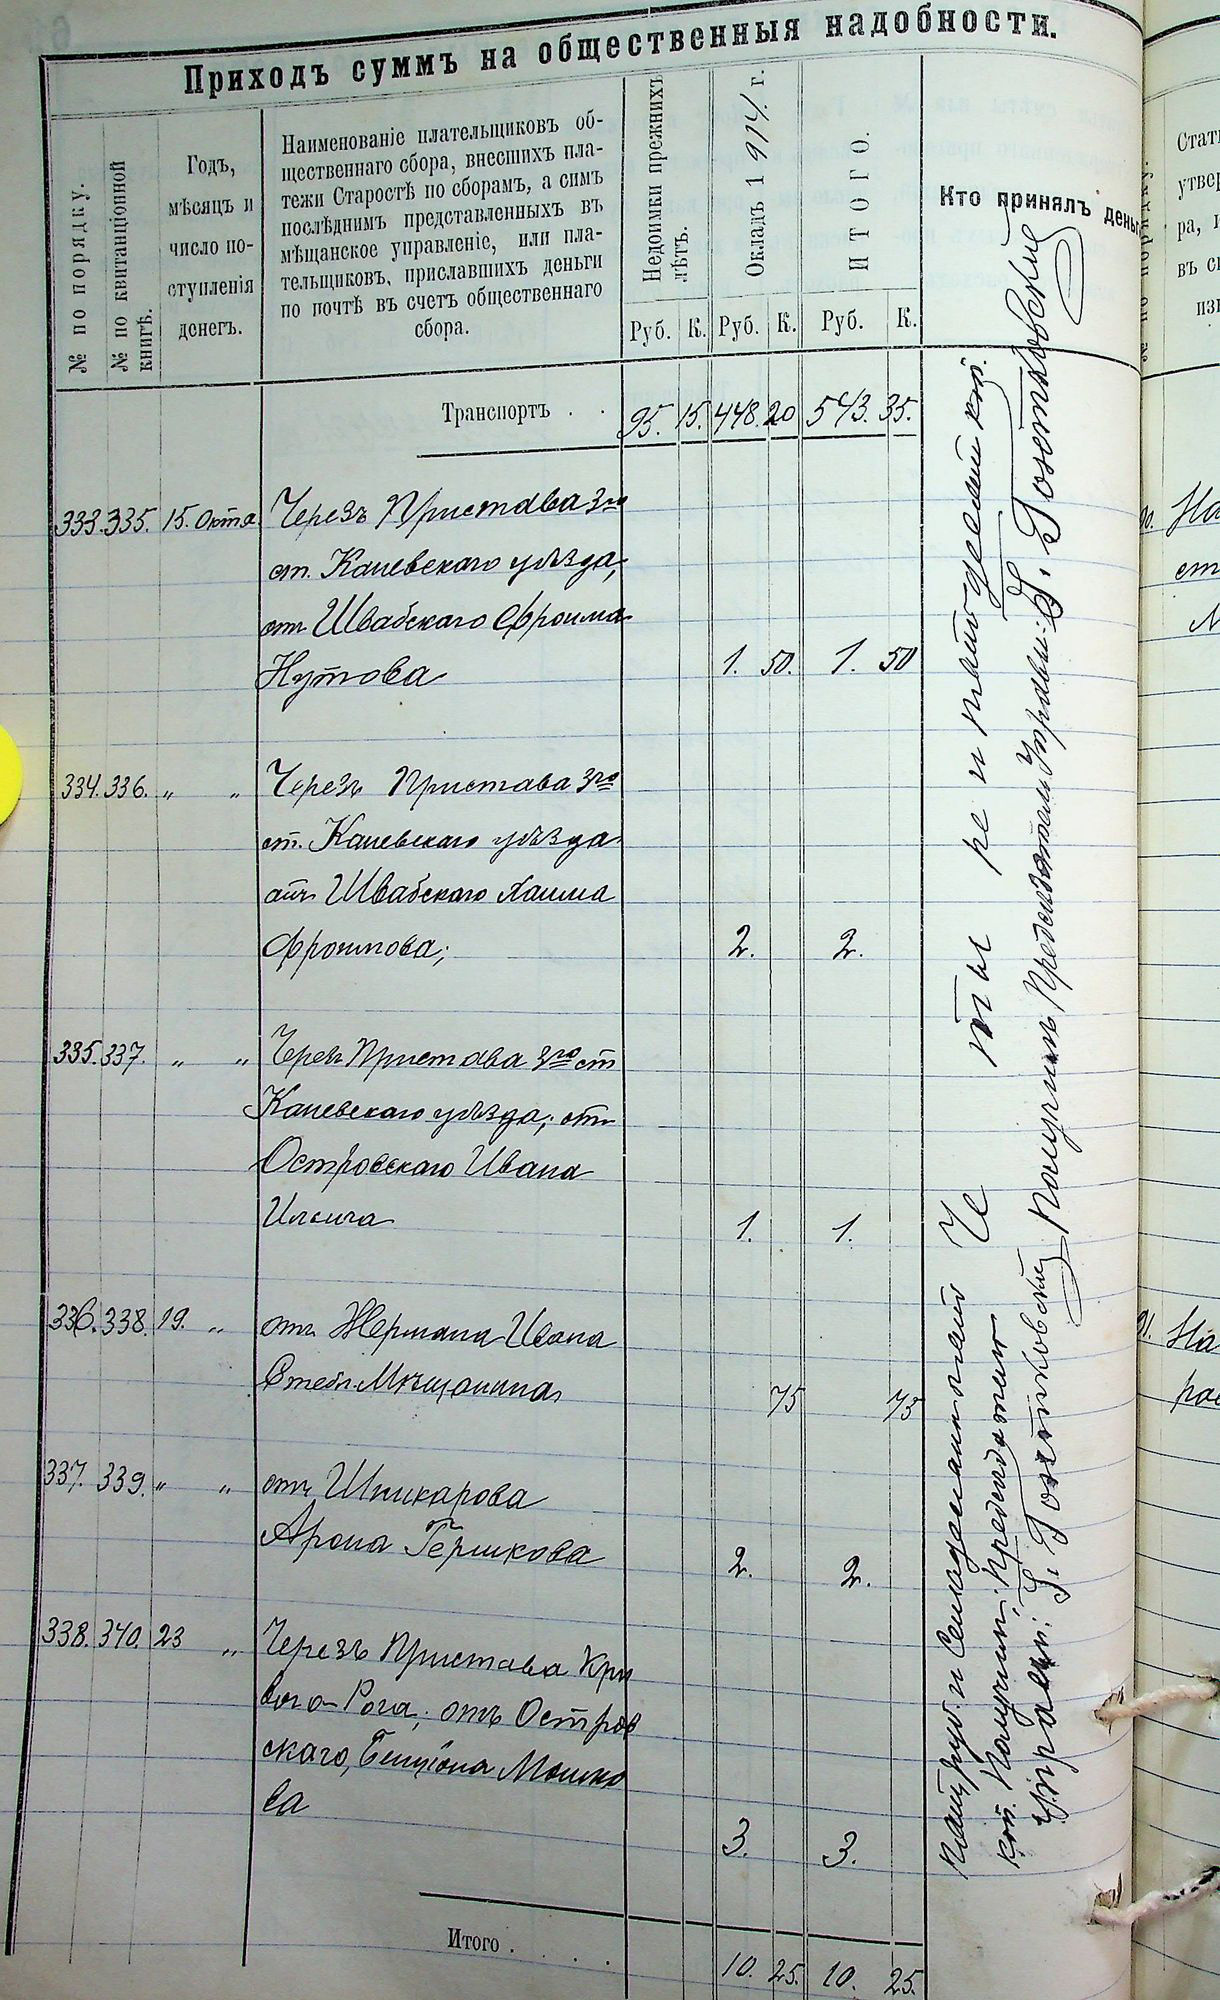 Приходъ суммъ на общественныя надобности.
№ по порядку.
№ по квитанціонной книгѣ.
Годъ,
мѣсяцъ и
число по-
ступленія
денегъ.
Наименованіе плательщиковъ об-
щественнаго сбора, внесшихъ пла-
тежи Старостѣ по сборамъ, а симъ
послѣднимъ представленныхъ въ
мѣщанское управленіе, или пла-
тельщиковъ, приславшихъ деньги
по почтѣ въ счетъ общественнаго
сбора.
Недоимки прежнихъ лѣтъ.
Окладъ 1914 г.
ИТОГО.
Кто принялъ деньг
Руб. К. Руб. К. Руб. К.
Транспортъ . . 95. 15. 448. 20 543. 35.
333. 335. 15. Октя Черезъ Пристава 3го
ст. Каневскаго уѣзда,
отъ Швабскаго Фроима
Нутова 1. 50. 1. 50
334. 336. „ „ Черезъ Пристава 3го
ст. Каневскаго уѣзда
отъ Швабскаго Хаима
Фроимова; 2. 2.
335. 337. „ „ Черезъ Пристава 3го ст
Каневскаго уѣзда; отъ
Островскаго Ивана
1. 1.
336. 338. 19. „ отъ Жермана Ивана
Стебл. Мѣщанина 75 75
337. 339. „ „ отъ
Арона Гершкова 2. 2.
338. 340. 23 „ Черезъ Пристава Кри
вого-Рога, отъ Остров
скаго, Бенціона Мошко
ва
3. 3.
Итого . . . . 10. 25. 10. 25.
Четыре и пятьдесят коп.
Получилъ Предсѣдатель Управы:
пять руб. и Семьдесятъ пять
коп. Получилъ: Предсѣдатель
Управы:
Стат
утвер
ра,
въ с
изъ
№ по порядку.
На
ст
На
рас